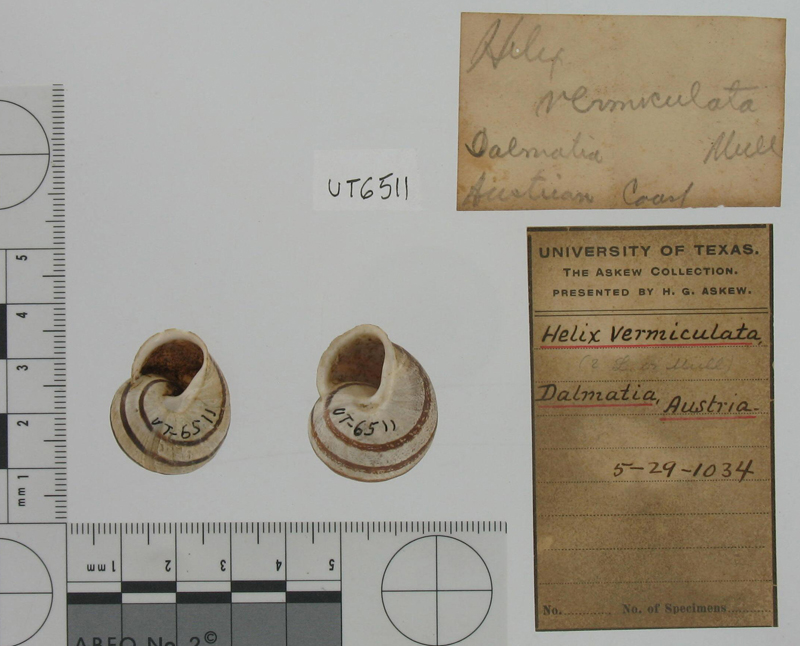 Helix
vermiculata
Dalmatia Mull
Austrian Coast
UT6511
UNIVERSITY OF TEXAS.
THE ASKEW COLLECTION.
PRESENTED BY H. G. ASKEW.
Helix Vermiculata,
Mull)
Dalmatia,
Austria-
5-29-1034
No. No. of Specimens
UT-6511
UT-6511
5
4
3
2
mm 1
mm 1 2 3 4 5
ABFO No. 2 ©